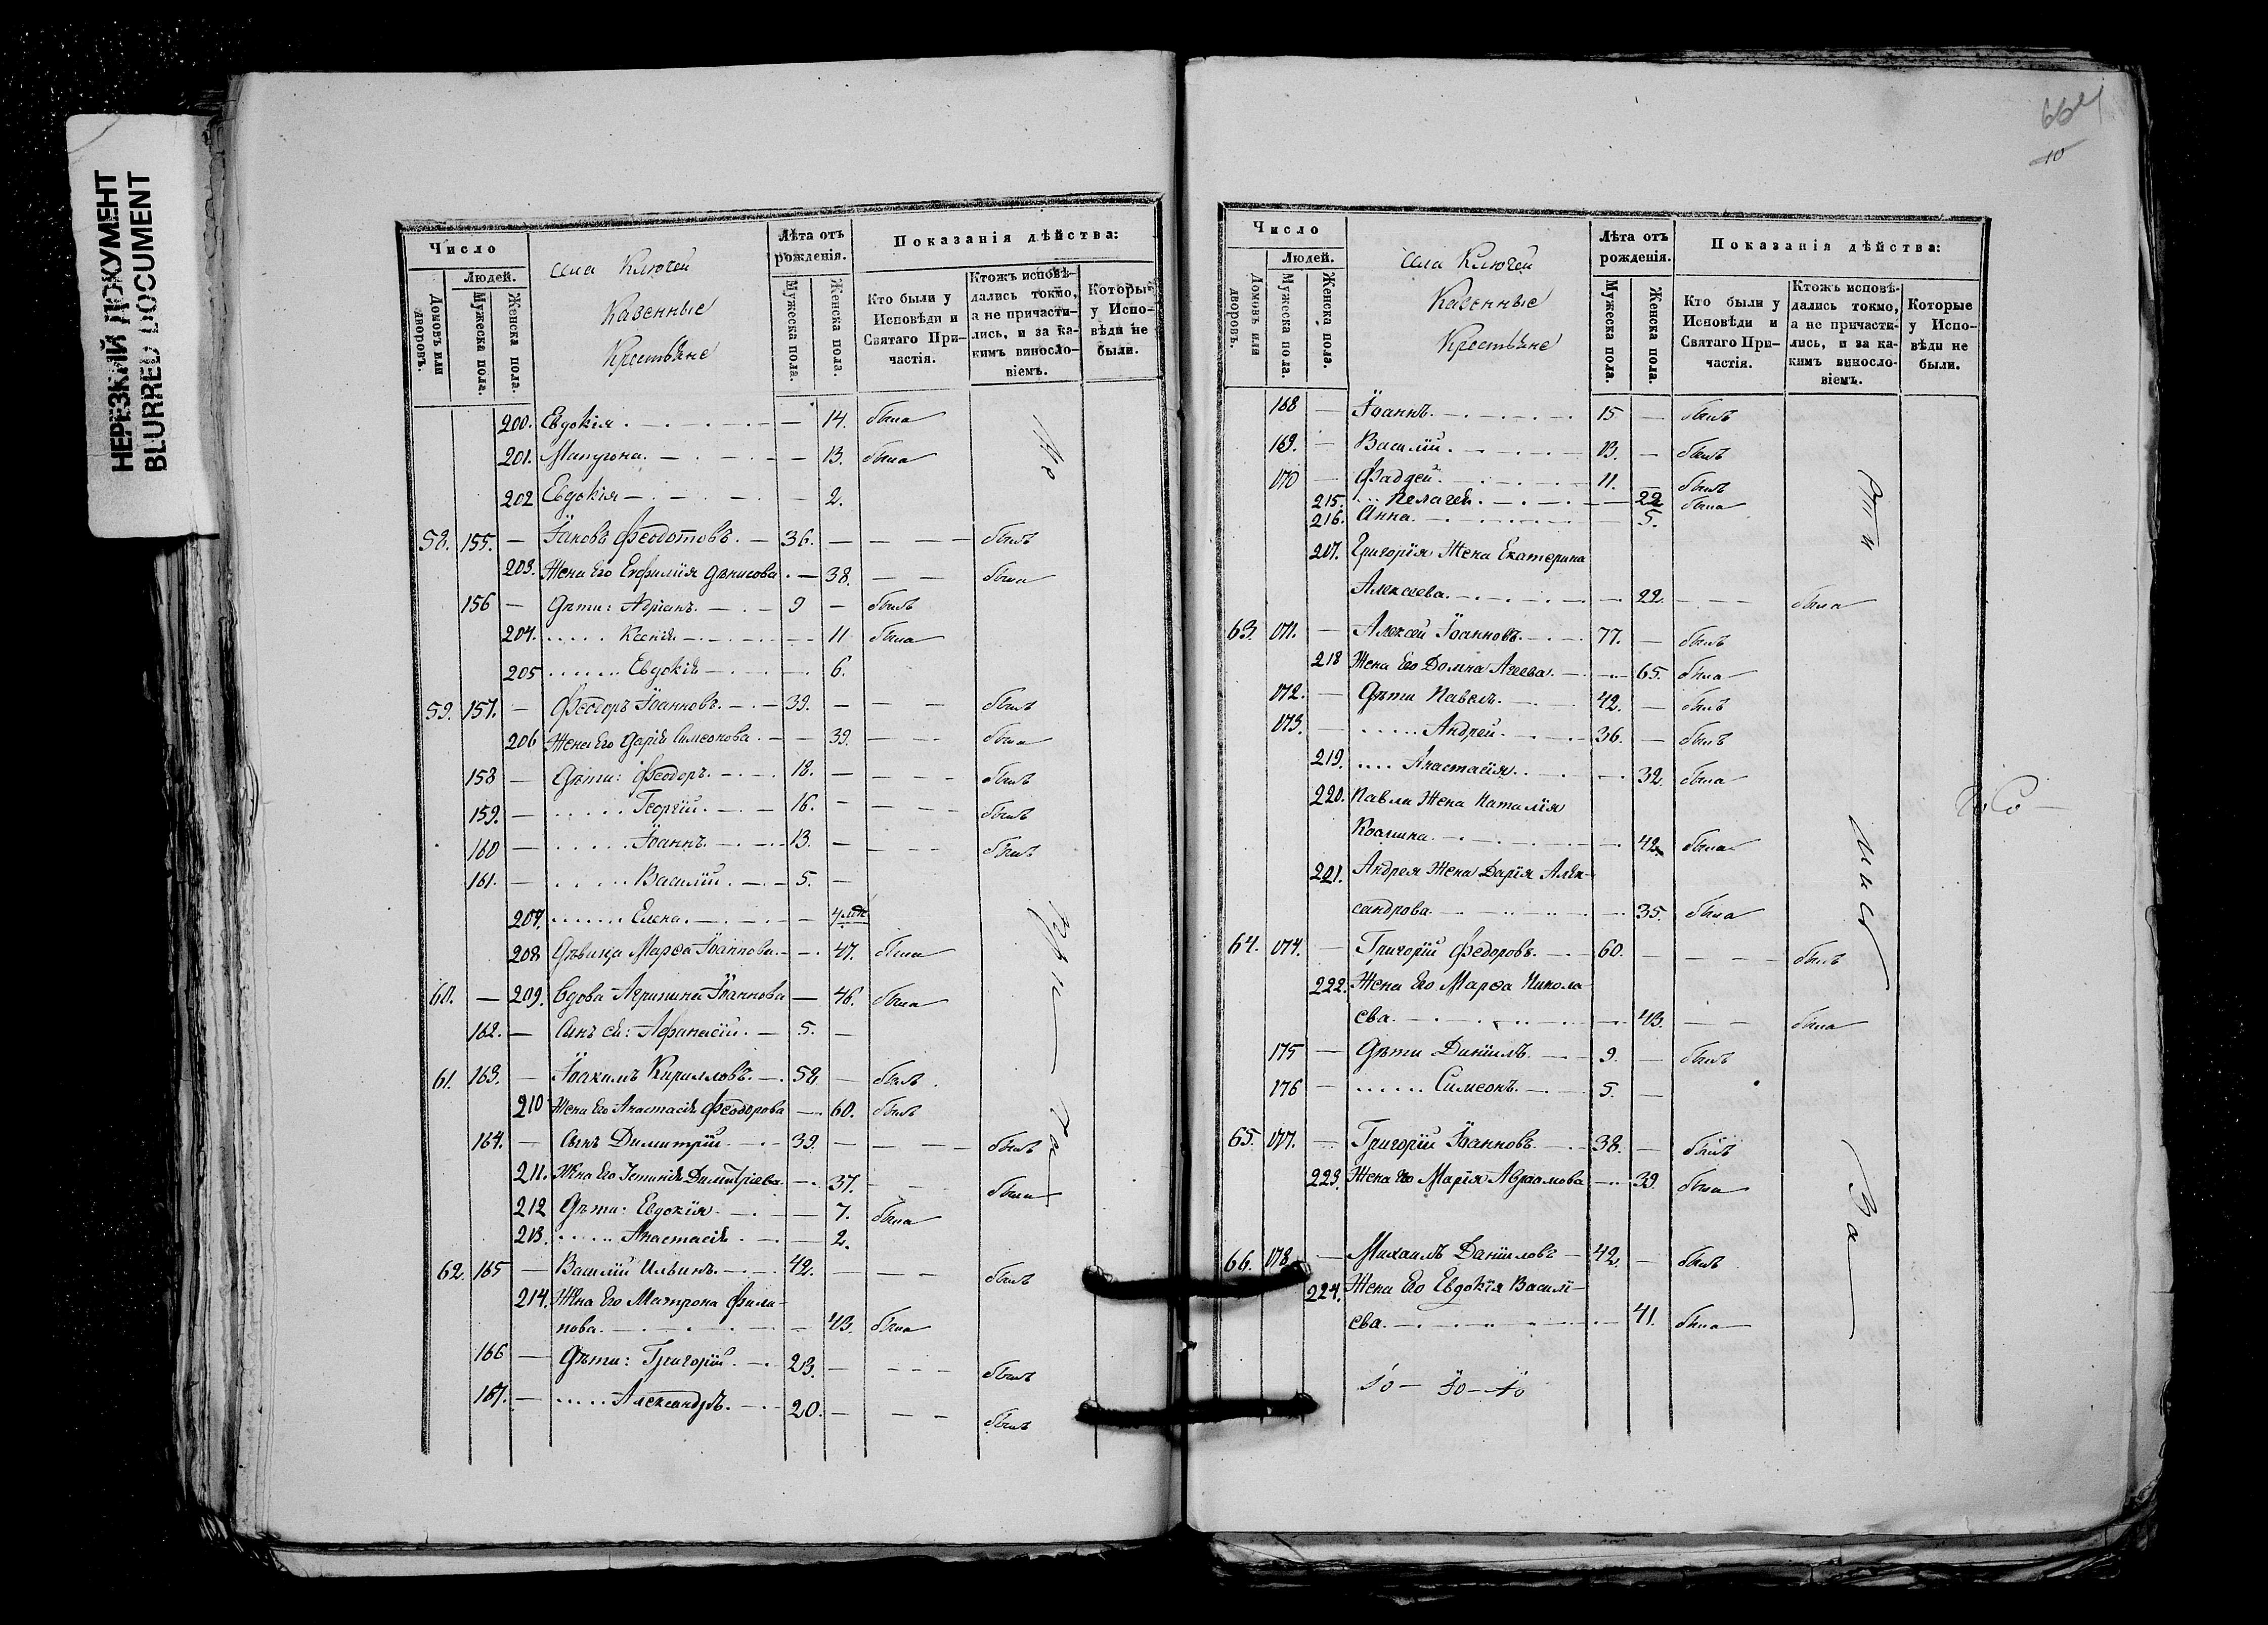 НЕРЕЗКИЙ ДОКУМЕНТ
BLURRED DOCUMENT
Число
Людей.
Домовъ или дворовъ.
Мужеска пола.
Женска пола.
села Ключей
Казенные
Крестьяне
Лѣта отъ рожденія.
Мужеска пола.
Женска пола.
Показанія дѣйства:
Кто были у Исповѣди и Святаго Причастія.
Ктожъ исповѣдались токмо, а не причастились, и за какимъ винословіемъ.
Которые у Исповѣди не были.
200. Евдокія 14. была
201. 13. была
202 Евдокія 2.
58. 155. Іаковъ Феодотовъ. 36. былъ
203. Жена Его Евфимія Денисова 38. была
156 Дѣти: Адріанъ. 9 былъ
204. Ксенія 11 была
205 Евдокія 6.
59. 157. Феодоръ Іоанновъ. 39. былъ
206 Жена Его Дарія Симеонова. 39. была
158 Дѣти: Феодоръ. 18. былъ
159. Георгій. 16. былъ
160 Іоаннъ. 13. былъ
161. Василій. 5.
207. Елена. 4
208 Дѣвица Марѳа Іоаннова. 47. была
60. 209. Вдова Агрипина Іоаннова 46. была
162. Сынъ ея: Афанасій. 5.
61. 163. Іоакимъ Кирилловъ. 58 былъ
210 Жена Его Анастасія Феодорова 60. былъ
164. Сынъ Димитрій. 39. былъ
211. Жена Его Димитріева. 37. была
212 Дѣти: Евдокія. 7. была
213. Анастасія 2.
62. 165 Василій Ильинъ. 42. былъ
214. Жена Его Матрона Фили-
пова. 43. была
166 Дѣти: Григорій. 23. былъ
167. Александръ. 20. былъ
664
10
Число
Людей.
Домовъ или дворовъ.
Мужеска пола.
Женска пола.
села Ключей
Казенные
Крестьяне
Лѣта отъ рожденія.
Мужеска пола.
Женска пола.
Показанія дѣйства:
Кто были у Исповѣди и Святаго Причастія.
Ктожъ исповѣдались токмо, а не причастились, и за какимъ винословіемъ.
Которые у Исповѣди не были.
168 Іоаннъ. 15 былъ
169. Василій. 13. былъ
170 Фаддей. 11. былъ
215. Пелагея. 22 была
216. Анна. 5.
217. Григорія Жена Екатерина
Алексеева. 22. была
63. 171. Алексей Іоанновъ. 77. былъ
218 Жена Его Домна Агеева. 65. была
172. Дѣти Павелъ. 42. былъ
173. Андрей. 36. былъ
219. Анастасія. 32. была
220. Павла Жена Наталія
Козмина. 42 была
221. Андрея Жена Дарія Алек-
сандрова. 35. была
64. 174. Григорій Федоровъ. 60. былъ
222. Жена Его Марѳа Никола
ева. 43. была
175 Дѣти Даніилъ. 9. былъ
176 Симеонъ. 5.
65. 177. Григорій Іоанновъ. 38. былъ
223. Жена Его Марія Авраамова 39. была
66. 178. Михаилъ Даніиловъ 42. былъ
224. Жена Его Евдокія Василі-
ева. 41. была